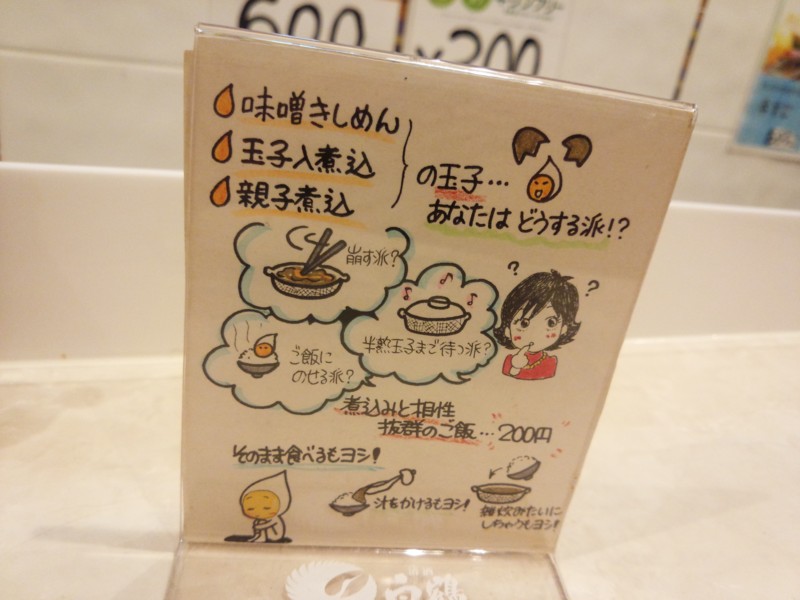 味噌きしめん
玉子入煮込
親子煮込
の玉子…
あなたは どうする派!?
崩す派?
半熟玉子まで待つ派?
ご飯に
のせる派?
煮込みと相性
抜群のご飯…200円
そのまま食べるもヨシ!
汁をかけるもヨシ!
雑炊みたいに
しちゃうもヨシ!